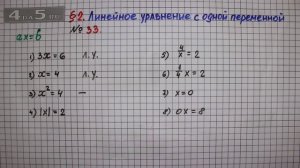 4 на 5. РФ
§2. Линейное уравнение с одной переменной
ax=b
№ 33.
1) 3x = 6 Л.У.
2) x = 4 Л.У.
3) x² = 4 —
4) |x| = 2
5) 4/x = 2
6) 1/4 x = 2
7) x = 0
8) 0x = 8